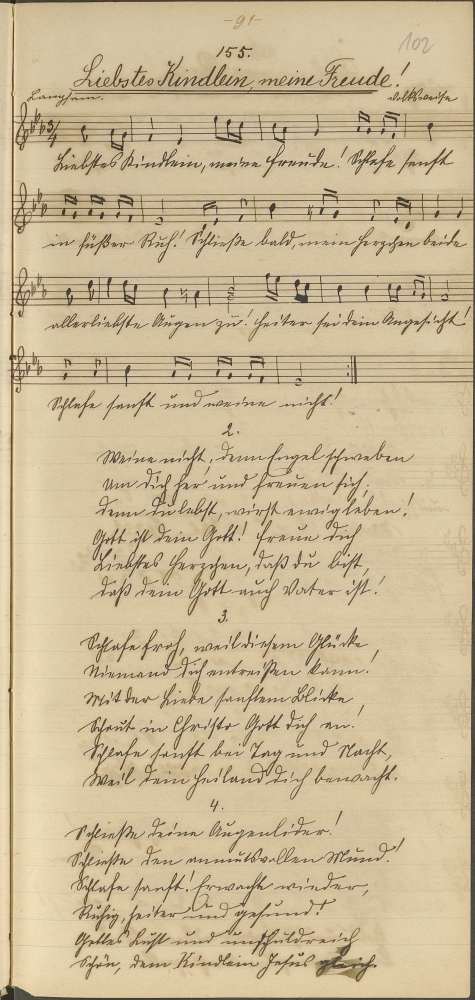 -91-
102
155.
Liebstes Kindlein, meine Freude!
Langsam.
Volksweise
3/4
Liebstes Kindlein, meine Freude! Schlafe sanft
in süßer Ruh! Schließe bald, mein Herzchen beide
allerliebste Augen zu! Heiter sei dein Angesicht!
Schlafe sanft und weine nicht!
2.
Weine nicht, denn Engel schweben
Um dich her und freuen sich.
Denn du lebst, wirst ewig leben!
Gott ist dein Gott! Freue dich
Liebstes Herzchen, daß du bist,
Daß dein Gott auch Vater ist!
3.
Schlafe froh, weil diesem Glücke
Niemand dich entreißen kann!
Mit der Liebe sanftem Blicke
Schaut in Christo Gott dich an!
Schlafe sanft bei Tag und Nacht,
Weil dein Heiland dich bewacht.
4.
Schließe deine Augenlider!
Schließe den anmutsvollen Mund!
Schlafe sanft! Erwache wieder,
Ruhig, heiter und gesund!
Gottes Licht und unschuldreich
Schön, dem Kindlein Jesus gleich.